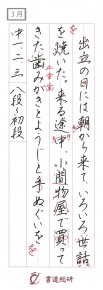 3月
出立の日には朝から来ていろいろ世話
を焼いた。来る途中小間物屋で買って
きた歯みがきとようじと手ぬぐいを
中一・二・三　八段〜初段
書道総研